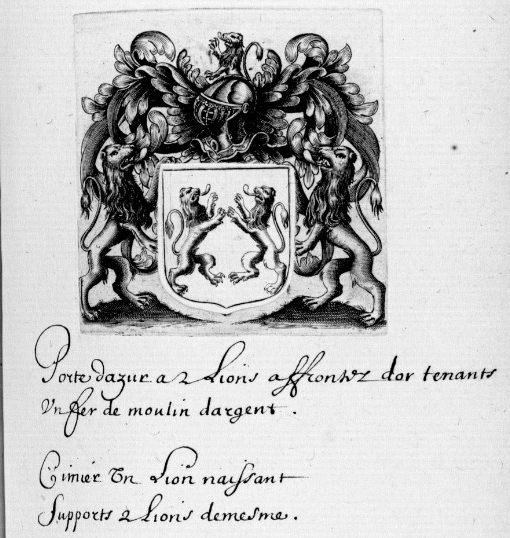 Porte dazur a 2 Lions affrontez dor tenants
Vn fer de moulin dargent.
Cimier Vn Lion naissant
Supports 2 Lions demesme.